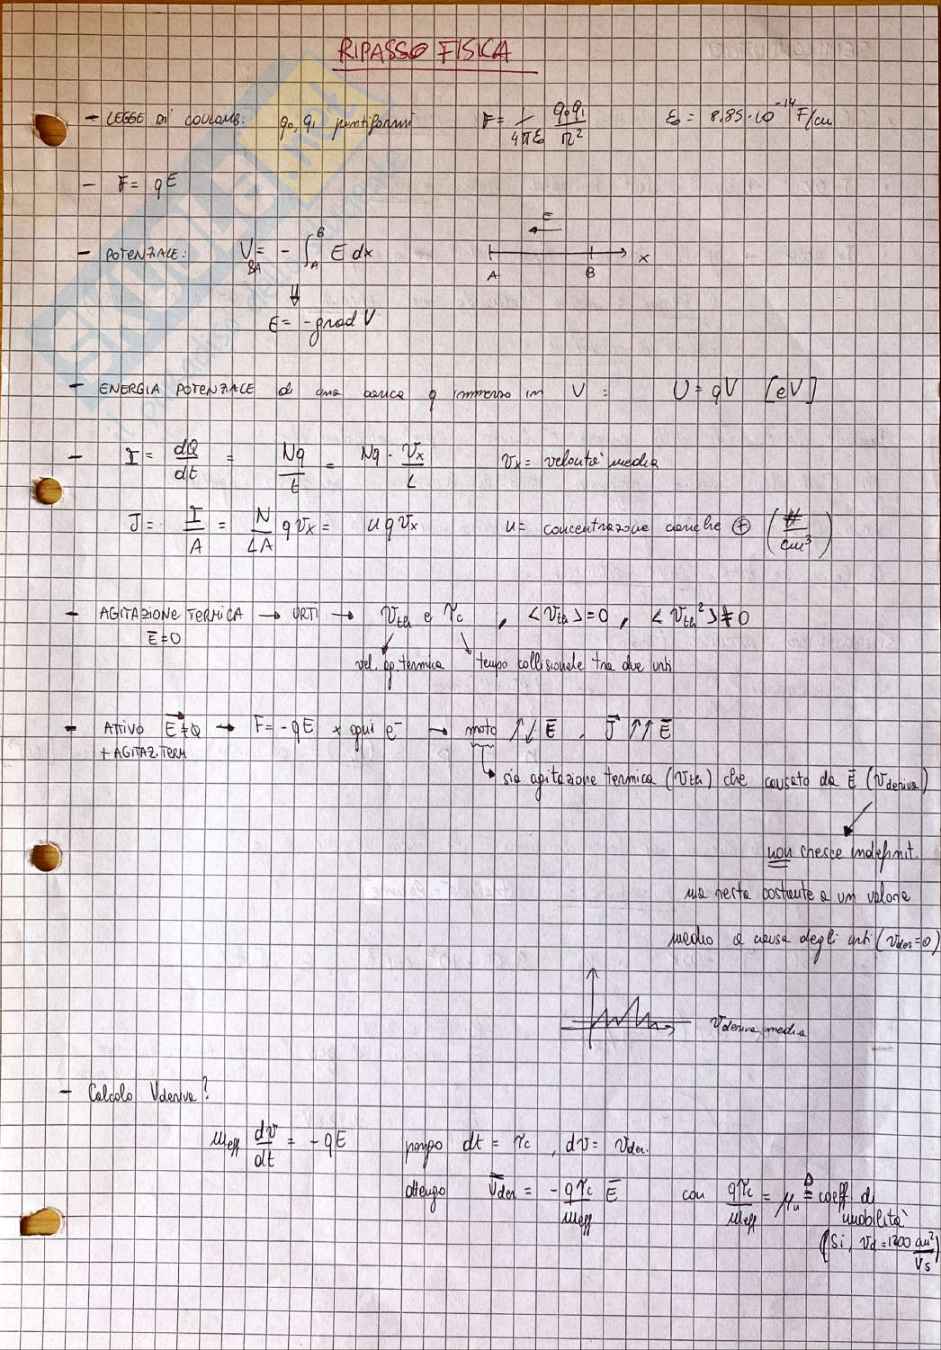 RIPASSO FISICA
- LEGGE DI COULOMB: q₀, q₁ puntiformi F = 1/4πε₀ q₀q₁/r² ε₀ = 8.85·10⁻¹⁴ F/cm
- F = qE
- POTENZIALE: V_BA = - ∫_A^B E dx E A B x
⇓
E = -grad V
- ENERGIA POTENZIALE di una carica q immersa in V : U = qV [eV]
- I = dQ/dt = Nq/t = Nq · v_x/L v_x = velocità media
J = I/A = N/LA q v_x = n q v_x n = concentrazione cariche ⊕ (#/cm³)
- AGITAZIONE TERMICA → URTI → v_th e τ_c , <v_th> = 0 , <v_th²> ≠ 0
E = 0
vel. ag. termica tempo collisionale tra due urti
- Attivo E ≠ 0 → F = -qE x ogni e⁻ → moto ↑↓ E , J ↑↑ E
+ AGITAZ. TERM
sia agitazione termica (v_th) che causato da E (v_deriva)
non cresce indefinit.
ma resta costante a un valore
medio a causa degli urti (v_der = 0)
v_deriva media
- Calcolo v_deriva?
m_eff dv/dt = -qE pongo dt = τ_c , dv = v_der.
ottengo v_der = -qτ_c/m_eff E con qτ_c/m_eff = μ_n ≜ coeff di
mobilità
(Si, v_d = 1200 cm²/Vs)